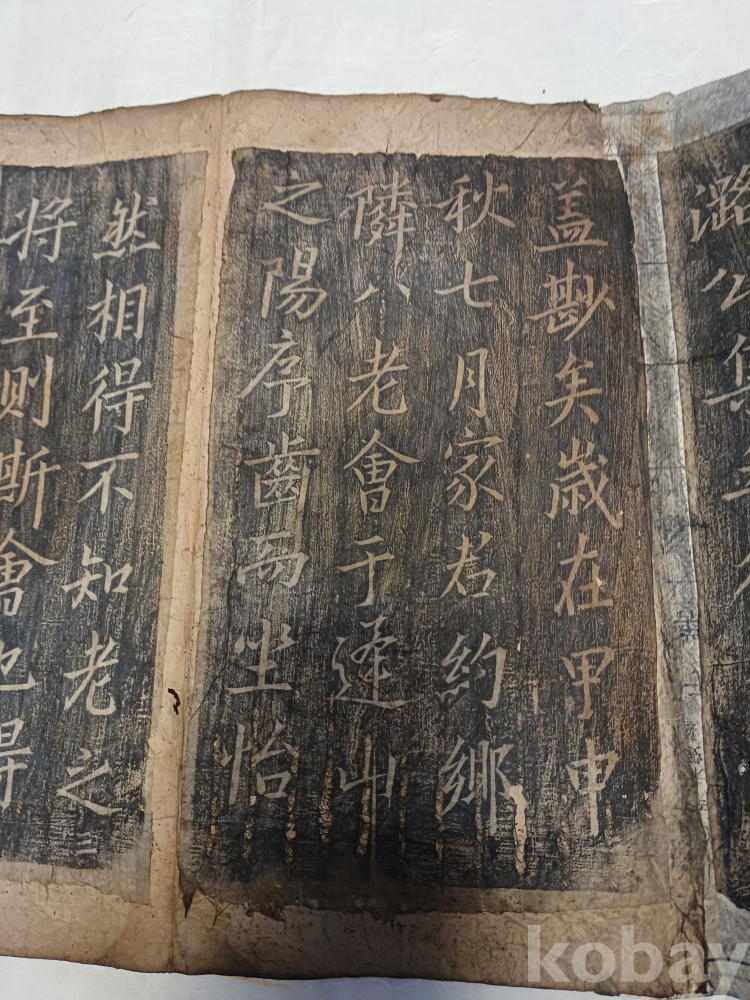 潞公集
蓋尠矣歲在甲申
秋七月家君約鄉
隣八老會于逶山
之陽序齒而坐怡
然相得不知老之
将至则斯會也得
kobay